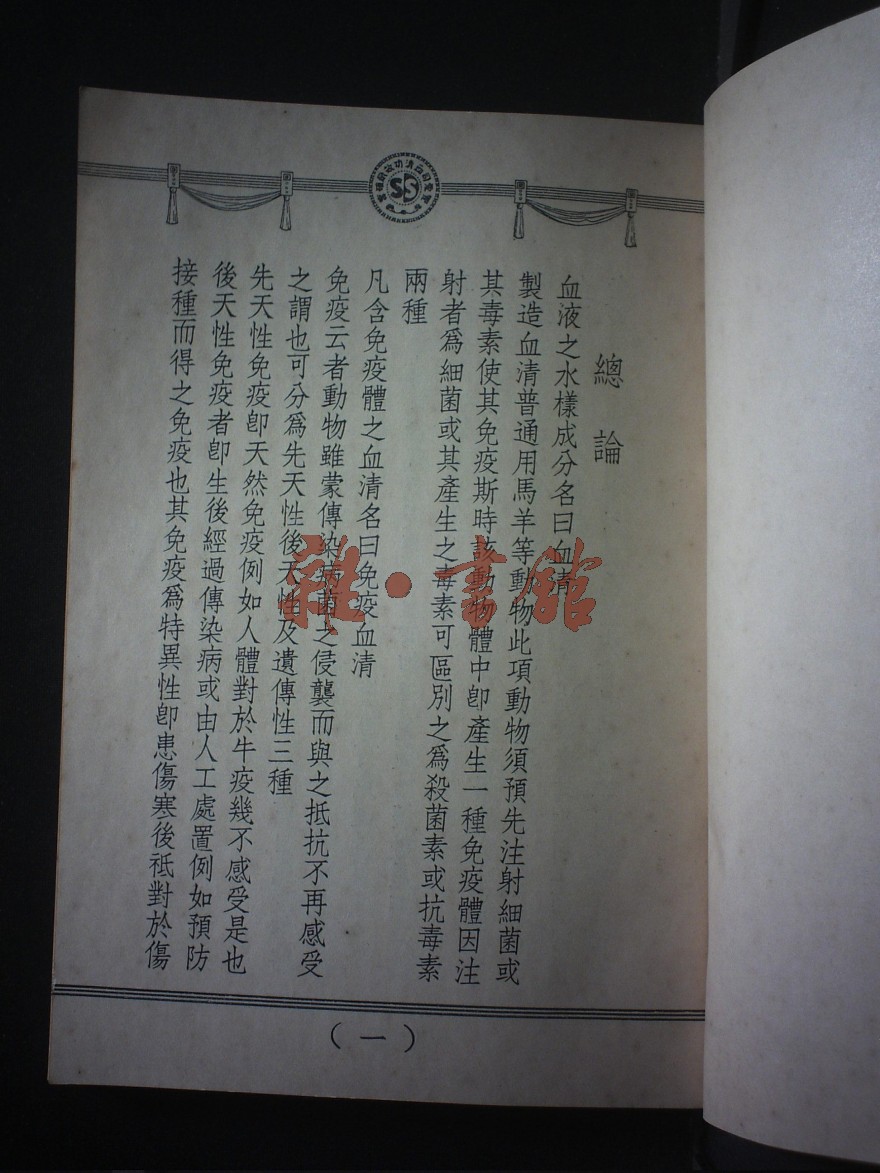 總論
血液之水樣成分名曰血清
製造血清普通用馬羊等動物此項動物須預先注射細菌或
其毒素使其免疫斯時該動物體中卽產生一種免疫體因注
射者爲細菌或其產生之毒素可區別之爲殺菌素或抗毒素
兩種
凡含免疫體之血清名曰免疫血清
免疫云者動物雖蒙傳染病菌之侵襲而與之抵抗不再感受
之謂也可分爲先天性後天性及遺傳性三種
先天性免疫卽天然免疫例如人體對於牛疫幾不感受是也
後天性免疫者卽生後經過傳染病或由人工處置例如預防
接種而得之免疫也其免疫爲特異性卽患傷寒後祇對於傷
(一)
雜·書館